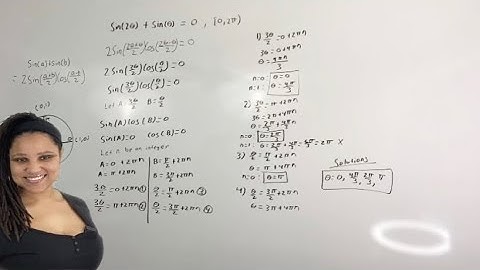 Sin(2θ) + Sin(θ) = 0 , [0,2π)
Sin(a)+Sin(b)
= 2Sin((a+b)/2)Cos((a-b)/2)
2Sin((2θ+θ)/2)Cos((2θ-θ)/2) = 0
2Sin(3θ/2)Cos(θ/2) = 0
Sin(3θ/2)Cos(θ/2) = 0
Let A = 3θ/2 B = θ/2
Sin(A)Cos(B) = 0
Sin(A)=0 Cos(B)=0
Let n be an integer
A = 0 + 2πn
A = π + 2πn
3θ/2 = 0 + 2πn ①
3θ/2 = π + 2πn ②
B = π/2 + 2πn
B = 3π/2 + 2πn
θ/2 = π/2 + 2πn ③
θ/2 = 3π/2 + 2πn ④
1) 3θ/2 = 0 + 2πn
3θ = 0 + 4πn
θ = 4πn/3
n=0: θ = 0
n=1: θ = 4π/3
2) 3θ/2 = π + 2πn
3θ = 2π + 4πn
θ = 2π/3 + 4πn/3
n=0 θ = 2π/3
n=1: θ = 2π/3 + 4π/3 = 6π/3 = 2π X
3) θ/2 = π/2 + 2πn
θ = π + 4πn
n=0 θ = π
4) θ/2 = 3π/2 + 2πn
θ = 3π + 4πn
Solutions
θ = 0, 4π/3, 2π/3, π